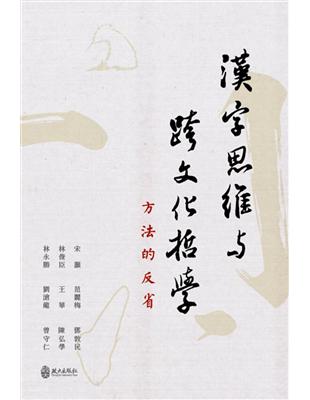 漢字思維与
跨文化哲學
方法的反省
宋灝　范麗梅　鄧敦民
林俊臣　王華　陳弘學
林永勝　劉滄龍　曾守仁
政大出版社